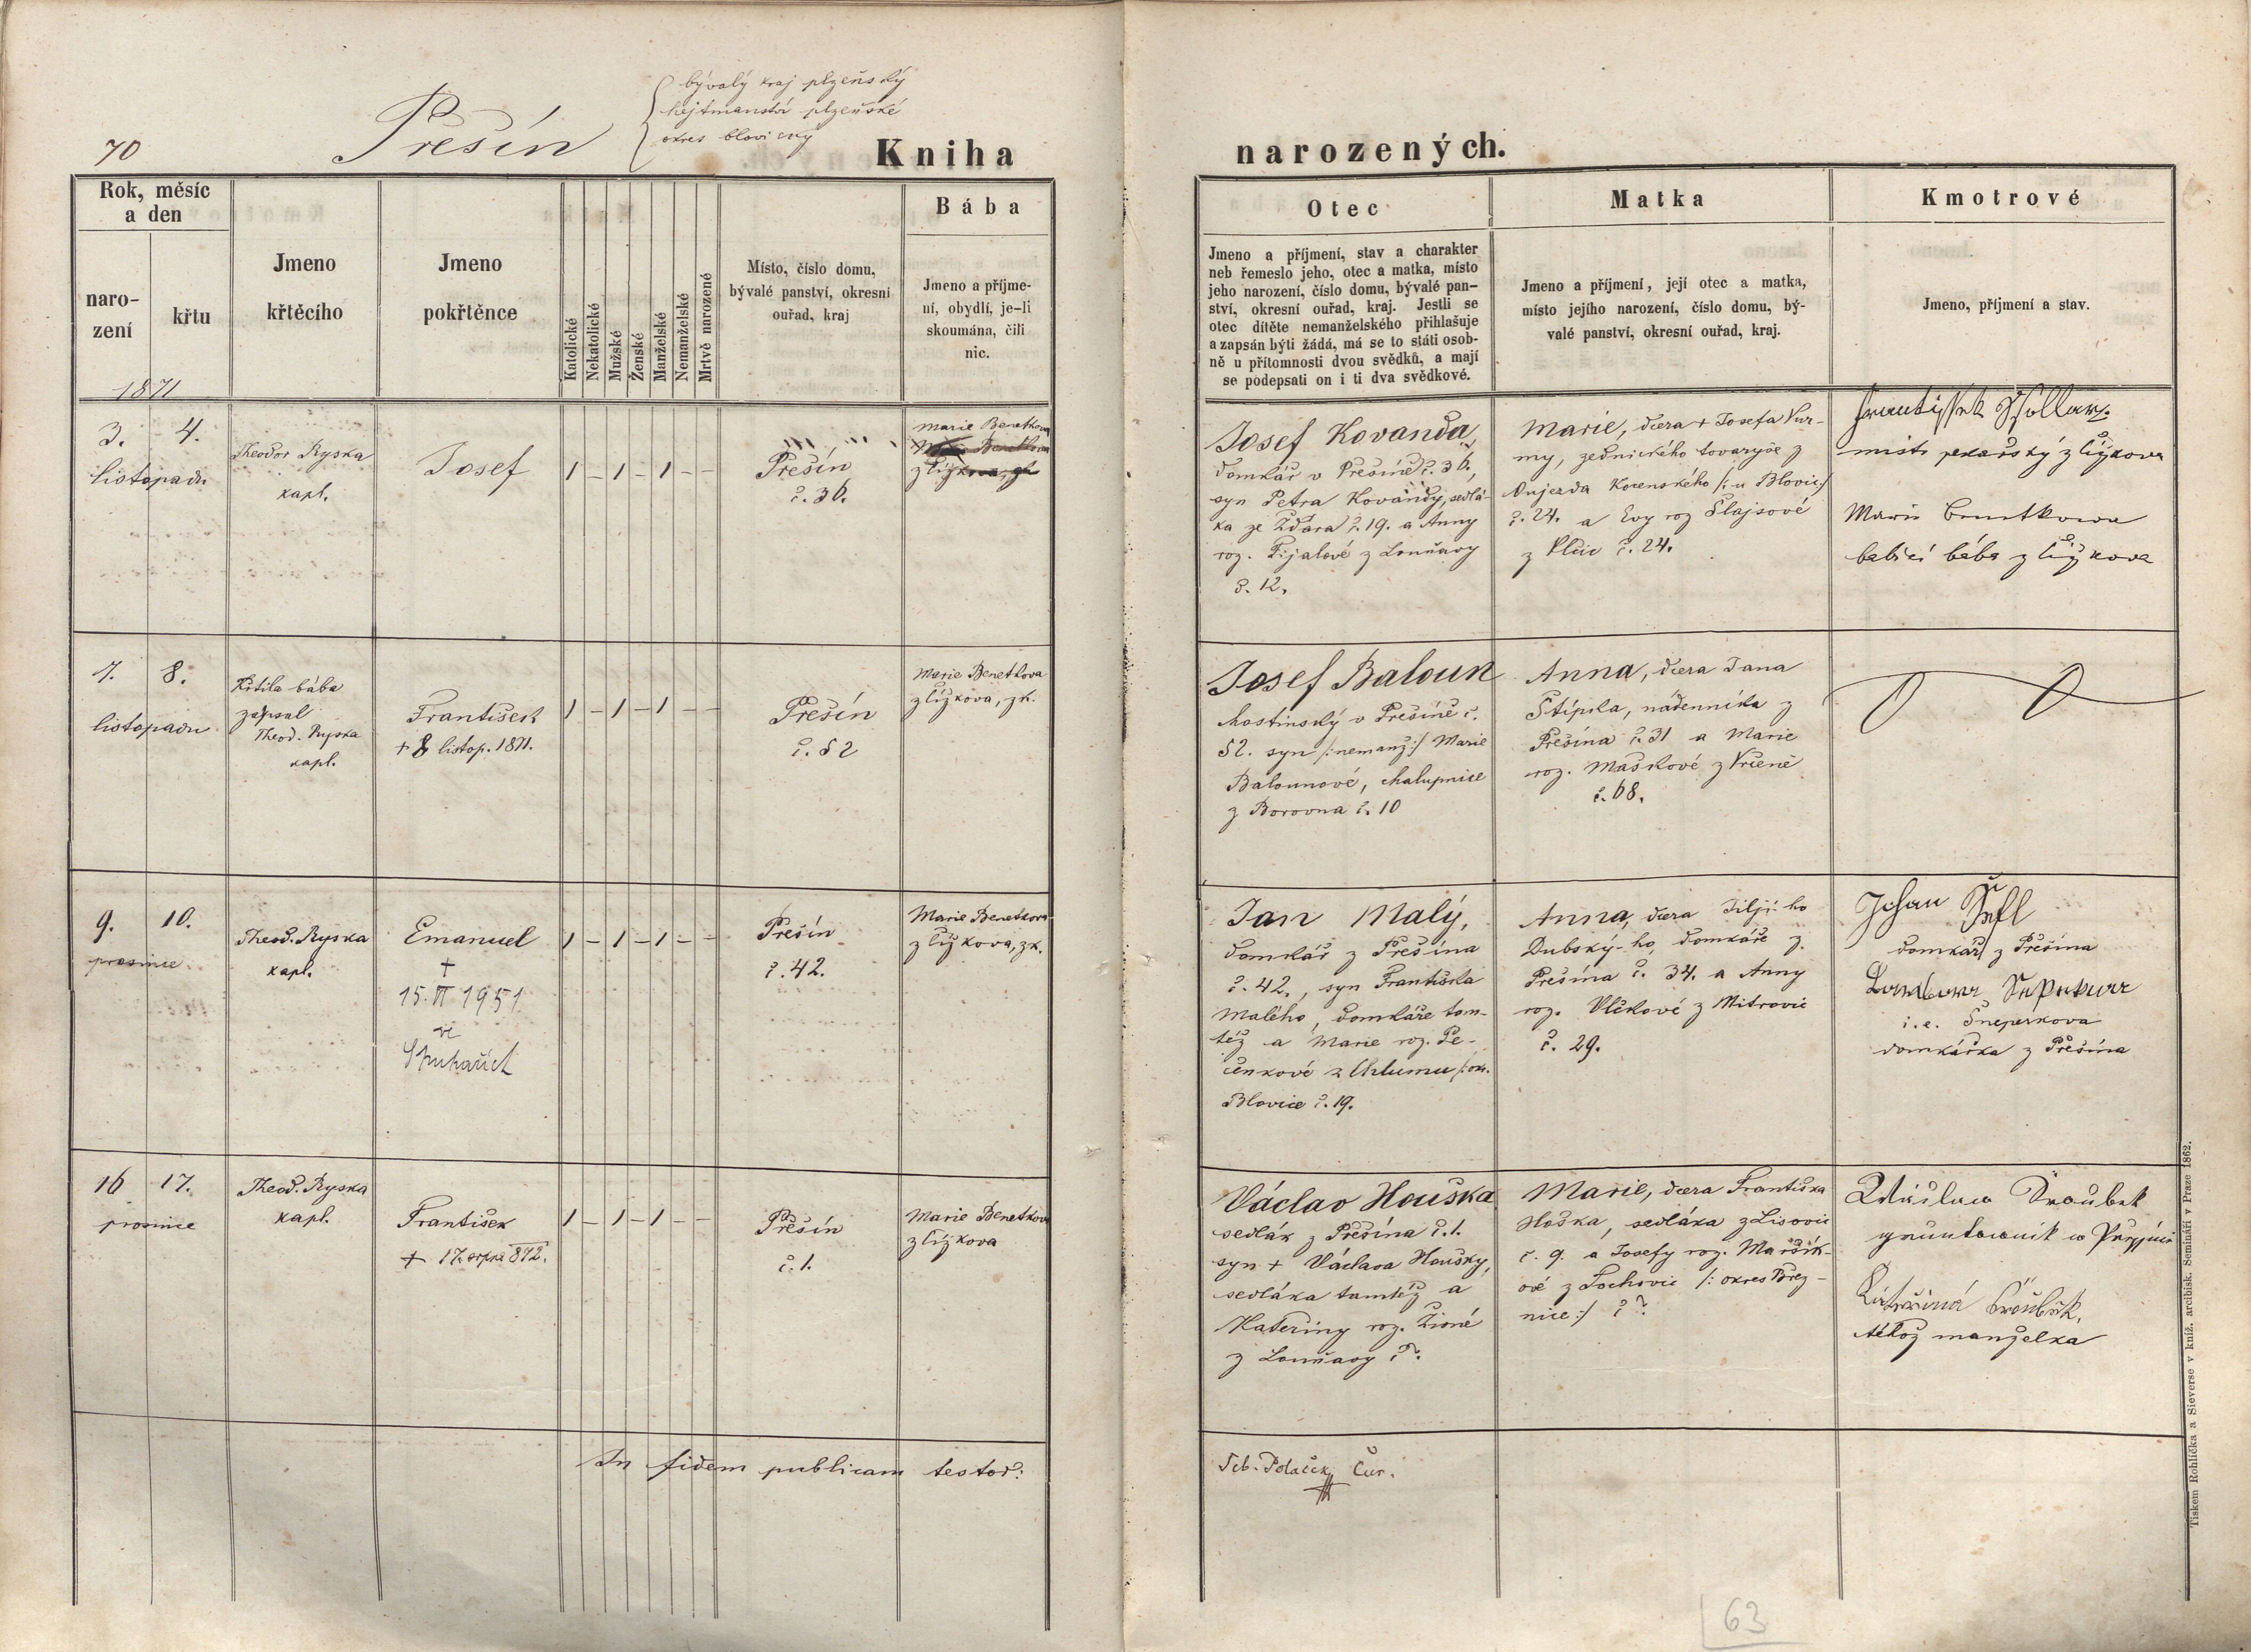 70
Přešín
bývalý kraj plzeňský
hejtmanství plzeňské
okres blovický
Kniha
narozených.
Rok, měsíc
a den
naro-
zení
křtu
Jmeno
křtěcího
Jmeno
pokřtěnce
Katolické
Nekatolické
Mužské
Ženské
Manželské
Nemanželské
Mrtvě narozené
Místo, číslo domu,
bývalé panství, okresní
ouřad, kraj
Bába
Jmeno a příjme-
ní, obydlí, je-li
skoumána, čili
nic.
Otec
Jmeno a příjmení, stav a charakter
neb řemeslo jeho, otec a matka, místo
jeho narození, číslo domu, bývalé pan-
ství, okresní ouřad, kraj. Jestli se
otec dítěte nemanželského přihlašuje
a zapsán býti žádá, má se to státi osob-
ně u přítomnosti dvou svědků, a mají
se podepsati on i ti dva svědkové.
Matka
Jmeno a příjmení, její otec a matka,
místo jejího narození, číslo domu, bý-
valé panství, okresní ouřad, kraj.
Kmotrové
Jmeno, příjmení a stav.
1871
3. 4.
listopadu
Theodor Ryska
kapl.
Josef
1 – 1 – 1 – –
Přešín
č. 36.
Marie Benetkova
z Čížkova, zk.
Josef Kovanda,
domkář v Přešíně č. 36,
syn Petra Kovandy, sedlá-
ka ze Ždára č. 19. a Anny
roz. Fijalové z Louňavy
č. 12.
Marie, dcera + Josefa Kur-
my, zednického tovaryše z
Oujezda Kocenského /: u Blovic:/
č. 24. a Evy roz Šlajsové
z Vlčic č. 24.
mistr pekařský z Čížkova
babicí bába z Čížkova
7. 8.
listopadu
Křtila bába
zapsal
Theod. Ryska
kapl.
František
+ 8 listop. 1871.
1 – 1 – 1 – –
Přešín
č. 52
Marie Benetkova
z Čížkova, zk.
Josef Baloun
hostinský v Přešíně č.
52. syn /: nemanž:/ Marie
Balounové, chalupnice
z Borovna č. 10
Anna, dcera Jana
Štípka, nádenníka z
Přešína č. 31 a Marie
roz. Maškové z Vrčeně
č. 68.
9. 10.
prosince
Theod. Ryska
kapl.
Emanuel
+
15. VI 1951
ve
1 – 1 – 1 – –
Přešín
č. 42.
Marie Benetkova
z Čížkova, zk.
Jan Malý,
domkář z Přešína
č. 42., syn Františka
Malého, domkáře tam-
též a Marie roz. Pe-
čenkové z Chlumu /: okr.
Blovice č. 19.
Anna, dcera Jiljí-ho
Dubský-ho, domkáře z
Přešína č. 34. a Anny
roz. Vlčkové z Mitrovic
č. 29.
Johan
domkář z Přešína
i. e. Šneperkova
domkářka z Přešína
16 17.
prosince
Theod. Ryska
kapl.
František
+ 17. srpna 872.
1 – 1 – 1 – –
Přešín
č. 1.
Marie Benetkova
z Čížkova
Václav Houška
sedlák z Přešína č. 1.
syn + Václava Houšky,
sedláka tamtéž a
Kateřiny roz. Živné
z Louňavy č ?.
Marie, dcera Františka
Hoška, sedláka z Lisovic
č. 9. a Josefy roz. Maršík-
ové z Tochovic /: okres Břez-
nice:/ č ?.
Troubek
Kateřina
téhož manželka
In fidem publicam testor:
Seb. Polaček Cur.
63
Tiskem Rohlíčka a Sieverse v kníž. arcibisk. Semináři v Praze 1862.